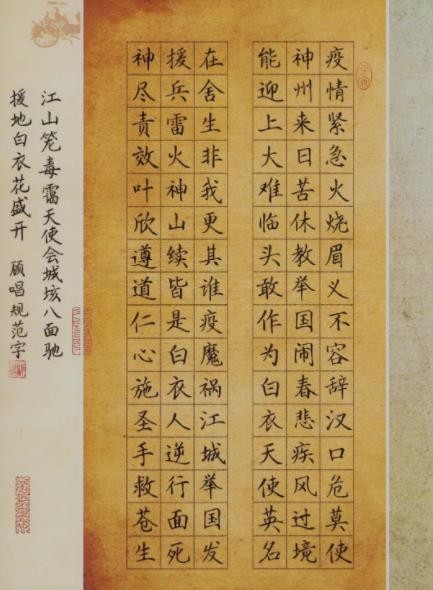 疫情紧急火烧眉义不容辞汉口危莫使
神州来日苦休教举国闹春悲疾风过境
能迎上大难临头敢作为白衣天使英名
在舍生非我更其谁疫魔祸江城举国发
援兵雷火神山续皆是白衣人逆行面死
神尽责效叶欣遵道仁心施圣手救苍生
江山笼毒霭天使会城垓八面驰
援地白衣花盛开 顾唱规范字